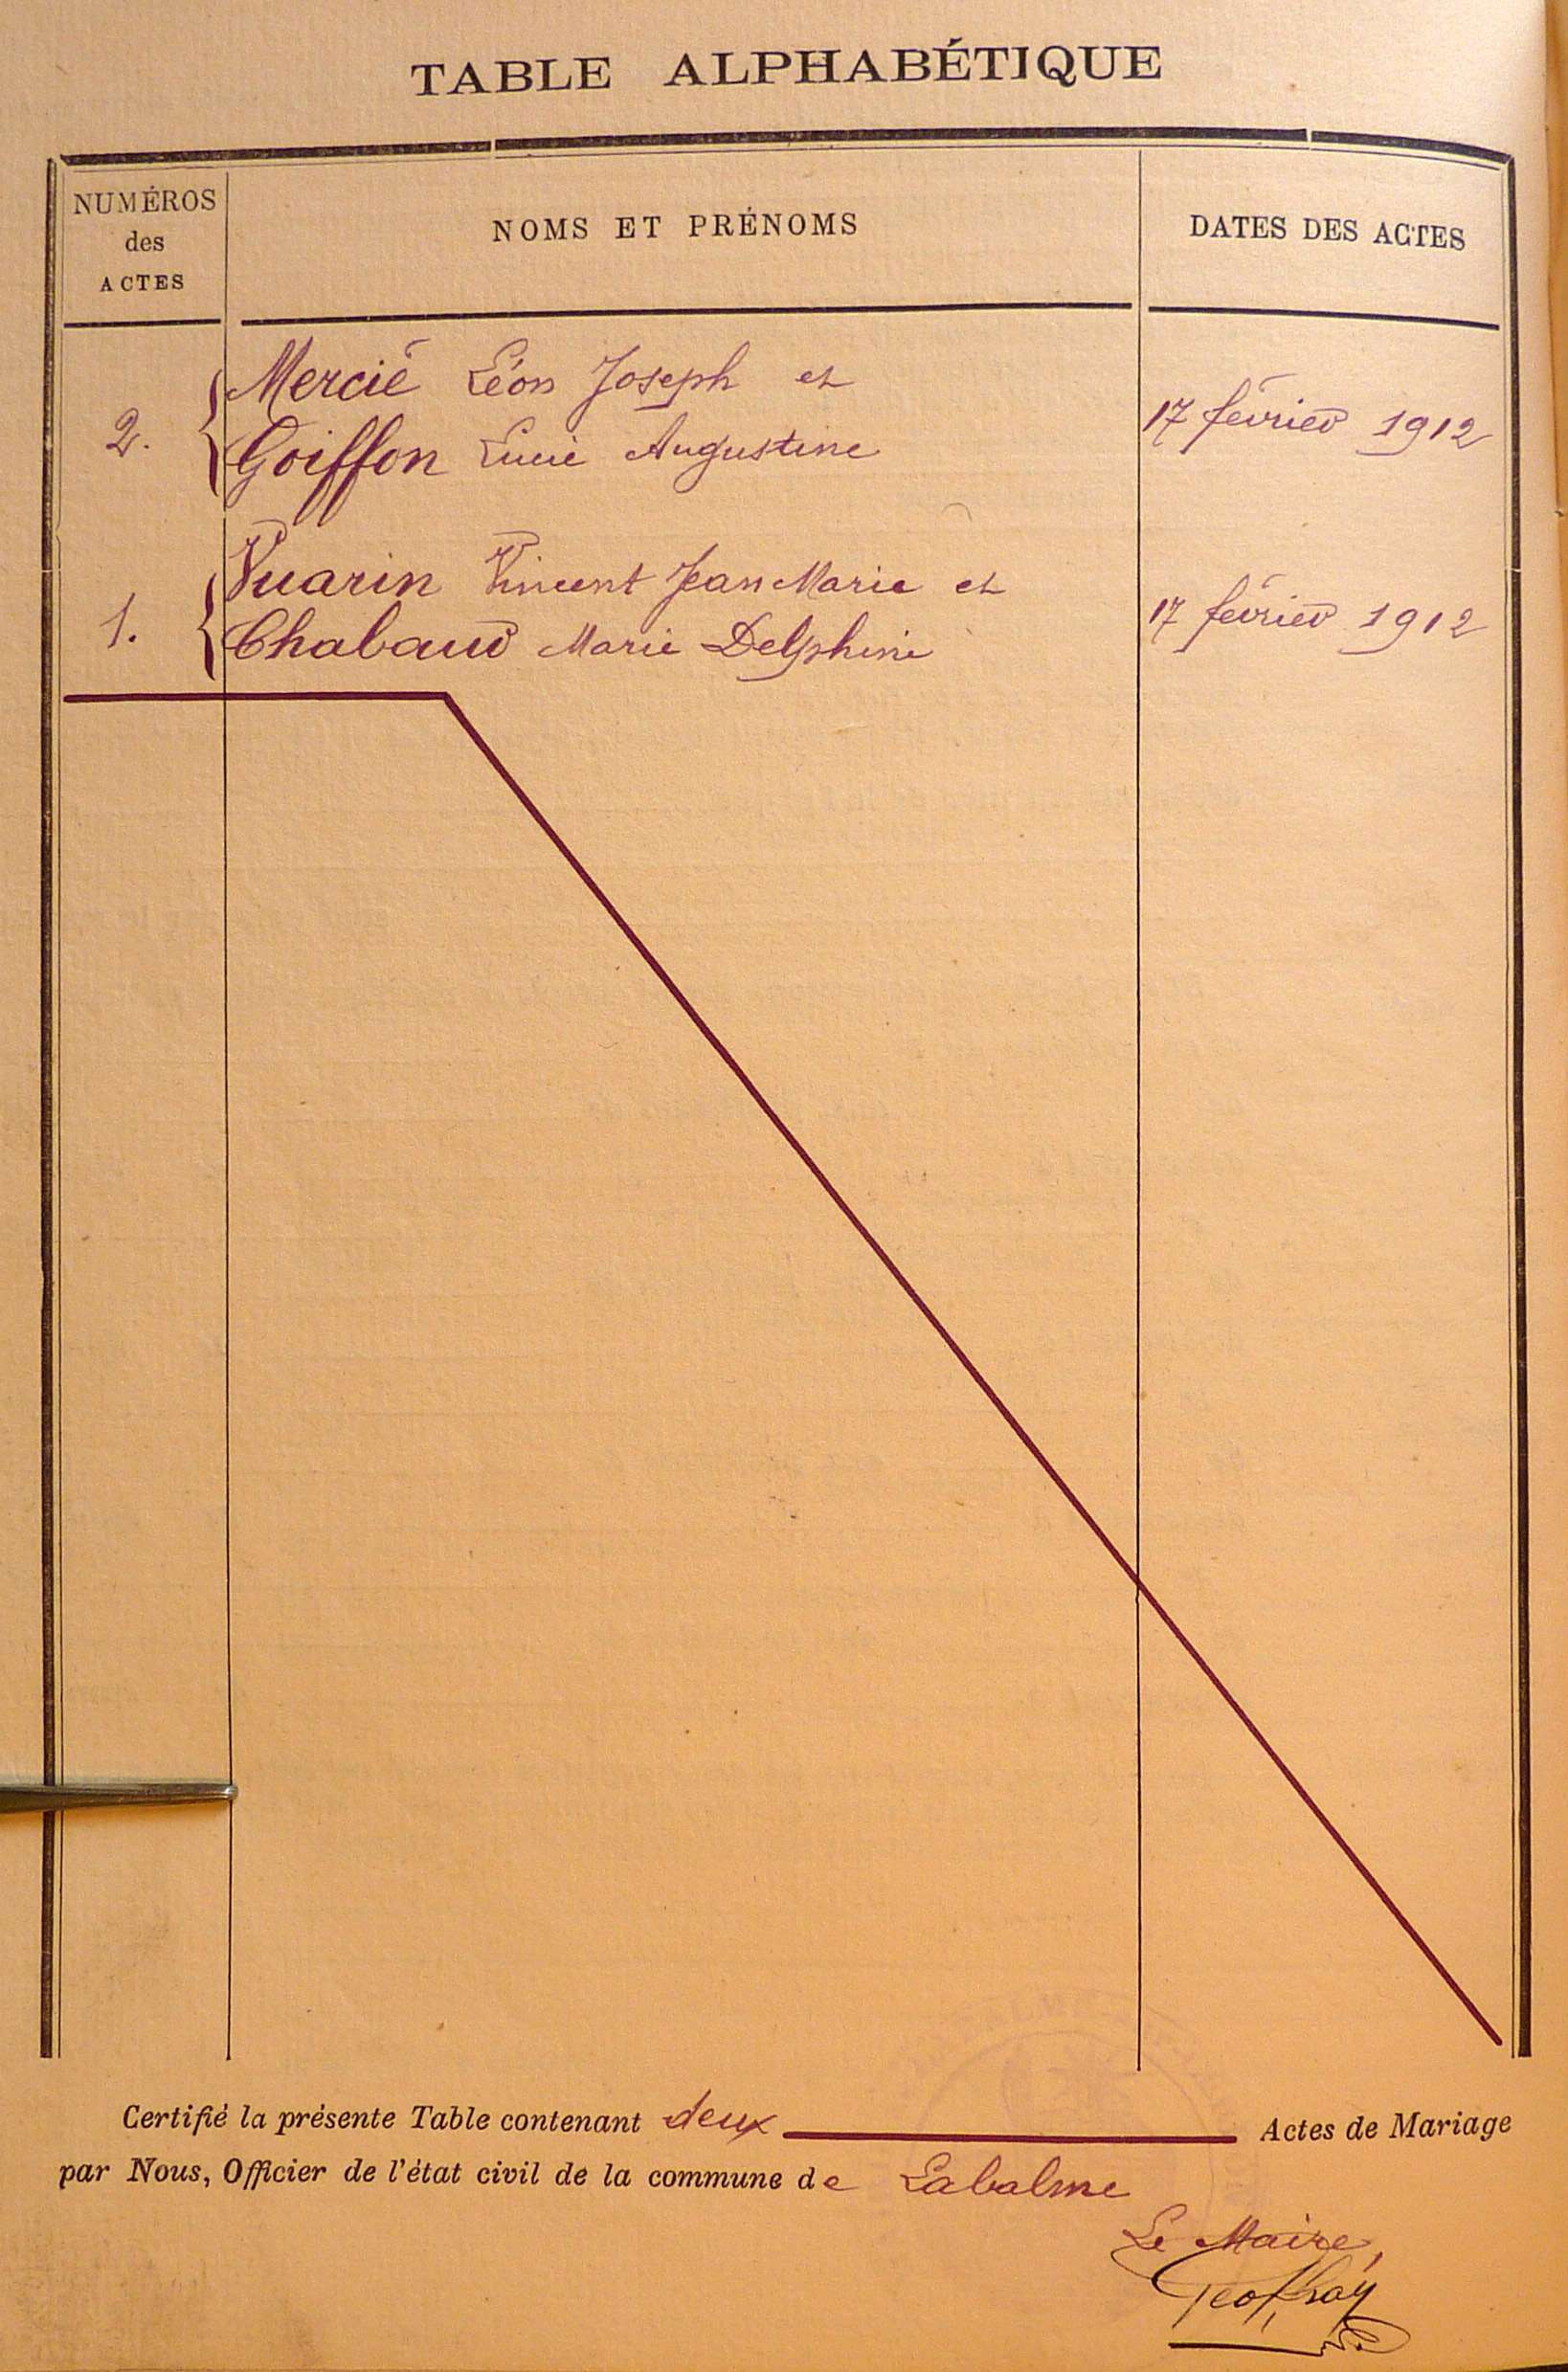 TABLE ALPHABÉTIQUE
NUMÉROS
des
ACTES
NOMS ET PRÉNOMS
DATES DES ACTES
Mercié Léon Joseph et
2. Goiffon Lucie Augustine
17 février 1912
Vuarin Vincent Jean Marie et
1. Chabaud Marie Delphine
17 février 1912
Certifié la présente Table contenant deux Actes de Mariage
par Nous, Officier de l'état civil de la commune de Labalme
Le Maire,
Geoffray